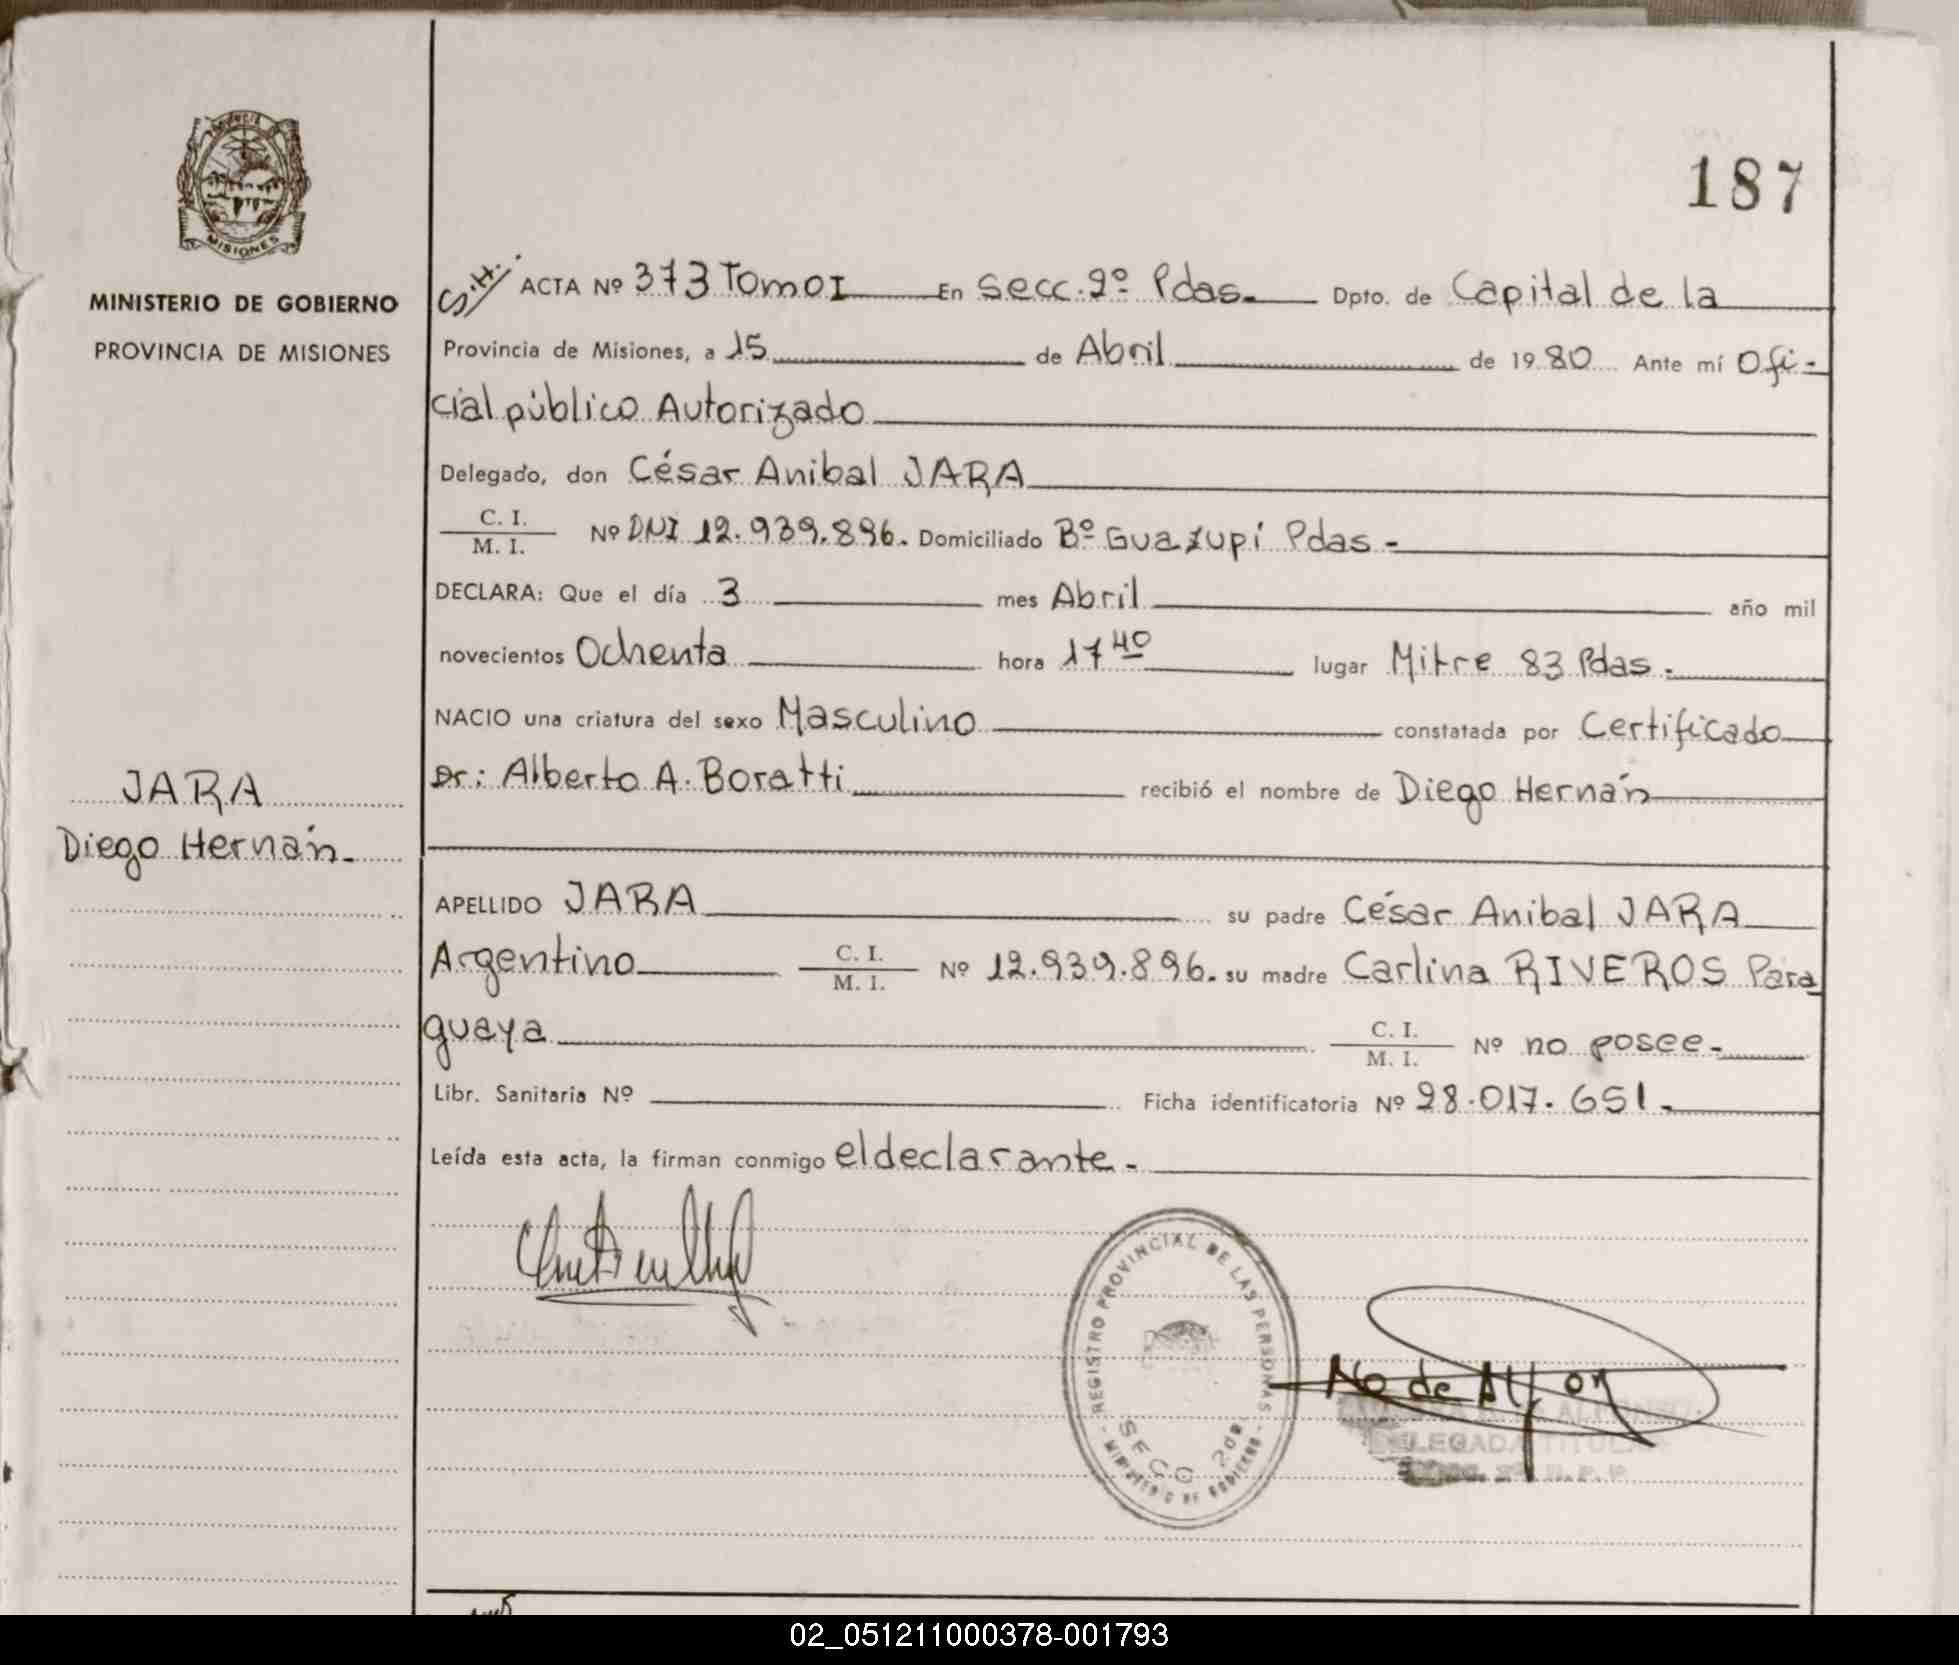 187
MISIONES
MINISTERIO DE GOBIERNO
PROVINCIA DE MISIONES
S.H. ACTA Nº 373 Tomo I En Secc. 2º Pdas. Dpto. de Capital de la
Provincia de Misiones, a 15 de Abril de 1980 Ante mí Ofi-
cial público Autorizado
Delegado, don César Anibal JARA
C. I.
M. I. Nº DNI 12.939.896. Domiciliado Bº Guazupí Pdas -
DECLARA: Que el día 3 mes Abril año mil
novecientos Ochenta hora 17 40 lugar Mitre 83 Pdas.
NACIO una criatura del sexo Masculino constatada por Certificado
Dr: Alberto A. Boratti recibió el nombre de Diego Hernán
JARA
Diego Hernán.
APELLIDO JARA su padre César Anibal JARA
Argentino C. I.
M. I. Nº 12.939.896. su madre Carlina RIVEROS Para
guaya C. I.
M. I. Nº no posee.
Libr. Sanitaria Nº Ficha identificatoria Nº 28.017.651.
Leída esta acta, la firman conmigo el declarante.
REGISTRO PROVINCIAL DE LAS PERSONAS
SECC 2da
MINISTERIO DE GOBIERNO
DELEGADA TITULAR
02_051211000378-001793